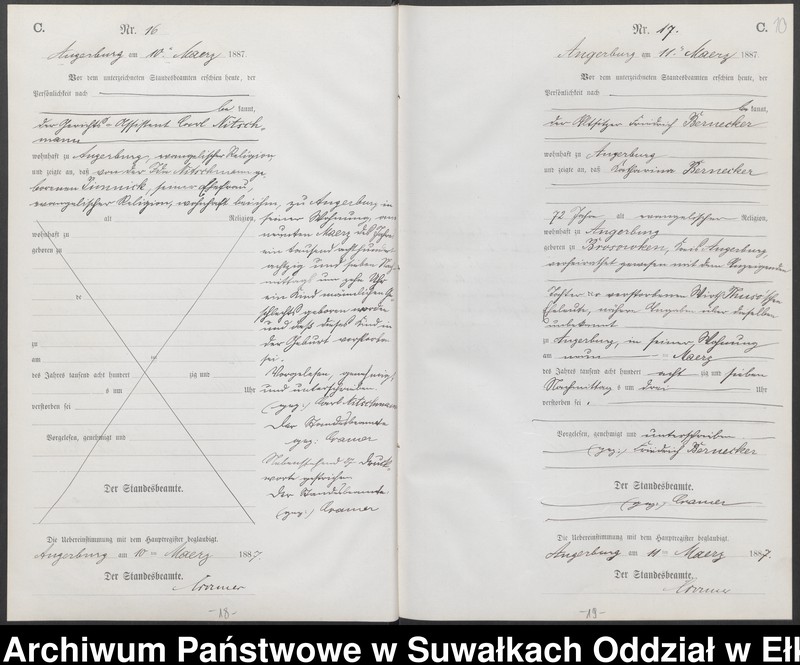 C.
Nr. 16
Angerburg am 10ten Maerz 1887.
Vor dem unterzeichneten Standesbeamten erschien heute, der
Persönlichkeit nach
be kannt,
der Gerichts-Assistent Carl Nitsch-
mann
wohnhaft zu Angerburg, evangelischer Religion
und zeigte an, daß von der Nitschmann ge
borenen seiner Ehefrau,
evangelischer Religion, wohnhaft bei ihm, zu Angerburg, in
alt Religion,
wohnhaft zu
geboren zu
de
zu
am ten
des Jahres tausend acht hundert zig und
s um Uhr
verstorben sei
Vorgelesen, genehmigt und
seiner Wohnung, am
neunten Maerz des Jahres
ein tausend achthundert
achtzig und sieben Nach
mittags um zehn Uhr
ein Kind männlichen Ge
schlechts geboren worden
und daß dieses Kind in
der Geburt verstorben
sei.
Vorgelesen, genehmigt
und unterschrieben
(gez.) Carl Nitschmann
Der Standesbeamte
gez. Cramer
Nebenstehend Druck
worte gestrichen
Der Standesbeamte
(gez.) Cramer
Der Standesbeamte.
Die Uebereinstimmung mit dem Hauptregister beglaubigt.
Angerburg am 10ten Maerz 1887.
Der Standesbeamte.
Cramer
-18-
Nr. 17.
C. 10
Angerburg am 11ten Maerz 1887.
Vor dem unterzeichneten Standesbeamten erschien heute, der
Persönlichkeit nach
be kannt,
der Altsitzer Friedrich Bernecker
wohnhaft zu Angerburg
und zeigte an, daß Katharina Bernecker
72 Jahr, alt evangelischer Religion,
wohnhaft zu Angerburg
geboren zu Brosowken, Kreis Angerburg,
verheirathet gewesen mit dem Anzeigenden
Tochter der verstorbenen Wirth
Eheleute, nähere Angaben über dieselben
unbekannt
zu Angerburg, in seiner Wohnung
am neun ten Maerz
des Jahres tausend acht hundert acht zig und sieben
Nachmittag s um drei Uhr
verstorben sei.
Vorgelesen, genehmigt und unterschrieben
(gez.) Friedrich Bernecker
Der Standesbeamte.
(gez.) Cramer
Die Uebereinstimmung mit dem Hauptregister beglaubigt.
Angerburg am 11ten Maerz 1887.
Der Standesbeamte.
Cramer
-19-
Archiwum Państwowe w Suwałkach Oddział w Ełk